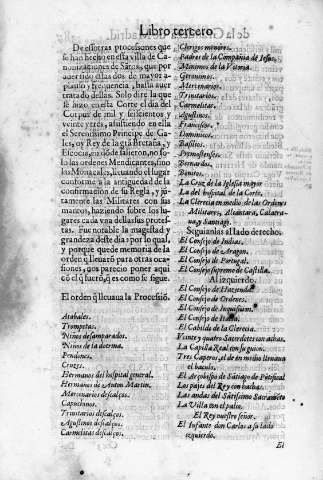 Libro tercero
De essotras procesiones que
se han hecho en esta villa de Ca-
nonizaciones de Sãtos, que por
auer sido ellas dos de mayor a-
plauso y frequencia, basta auer
tratado dellas. Solo dire la que
se hizo en esta Corte el dia del
Corpus de mil y seiscientos y
veinte y tres, assistiendo en ella
el Serenissimo Principe de Ga-
les, oy Rey de la grã Bretaña, y
Escocia, en dõde salieron, no so-
lo las ordenes Mendicantes, sino
las Monacales, lleuando el lugar
conforme a la antiguedad de la
confirmacion de su Regla, y jũ-
tamente las Militares con sus
mantos, haziendo sobre los lu-
gares cada vna dellas sus protes-
tas. Fue notable la magestad y
grandeza deste dia: por lo qual,
y porque quede memoria de la
orden q̃ lleuarõ para otras oca-
siones, nos parecio poner aqui
cõ el q̃ se hizo, q̃ es como se sigue.
El orden q̃ lleuaua la Procesiõ.
Atabales.
Trompetas.
Ninos desamparados.
Ninos de la dotrina.
Pendones.
Cruzes.
Hermanos del hospital general.
Hermanos de Anton Martin.
Mercenarios descalços.
Capuchinos.
Trinitarios descalços.
Agustinos descalços.
Carmelitas descalços.
Clerigos menores.
Padres de la Compañia de Iesus.
Minimos de la Vitoria.
Geronimos.
Mercenarios.
Trinitarios.
Carmelitas.
Agustinos.
Franciscos.
Dominicos.
Basilios.
Premostenses.
Bernardos.
Benitos.
La Cruz de la Iglesia mayor
La del hospital de la Corte.
La Clerecia en medio de las Ordenes
Militares, Alcantara, Calatra-
ua y Santiago.
Seguianlas al lado derecho.
El Consejo de Indias.
El Consejo de Aragon.
El Consejo de Portugal.
El Consejo supremo de Castilla.
Al izquierdo.
El Consejo de Hazienda.
El Consejo de Ordenes.
El Consejo de Inquisicion.
El Consejo de Italia.
El Cabildo de la Clerecia.
Veinte y quatro Sacerdotes con achas.
La Capilla Real con su guion.
Tres Caperos, el de en medio lleuaua
el baculo.
El Arçobispo de Sãtiago de Põtifical
Los pajes del Rey con hachas.
Las andas del Sãtissimo Sacramẽto
La Villa con el palio.
El Rey nuestro señor.
El Infante don Carlos a su lado
izquierdo.
El